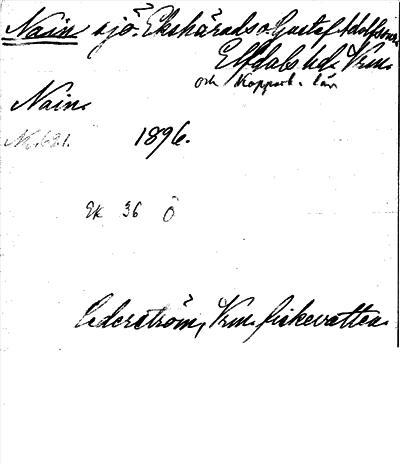 Nain sjö. Ekshärads o. Gustaf Adolfs snr
Elfdals hd. Vrm.
och Kopparb. län
Nain.
N. 621.
1896.
Ek 36 Ö
Cederström, Vrm. fiskevatten.